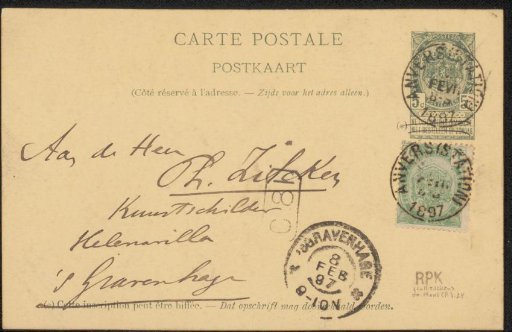 CARTE POSTALE
POSTKAART
(Côté réservé à l'adresse. — Zijde voor het adres alleen.)
ANVERS (STATION)
FEVR
1897
ANVERS (STATION)
1897
Aan de Heer
Ph. Zilcken
Kunstschilder
Helenavilla
's Gravenhage
C 8
'SGRAVENHAGE
8
FEB
97
9-10N
RPK
(*) Cette inscription peut être biffée. — Dat opschrift mag doorhaald worden.